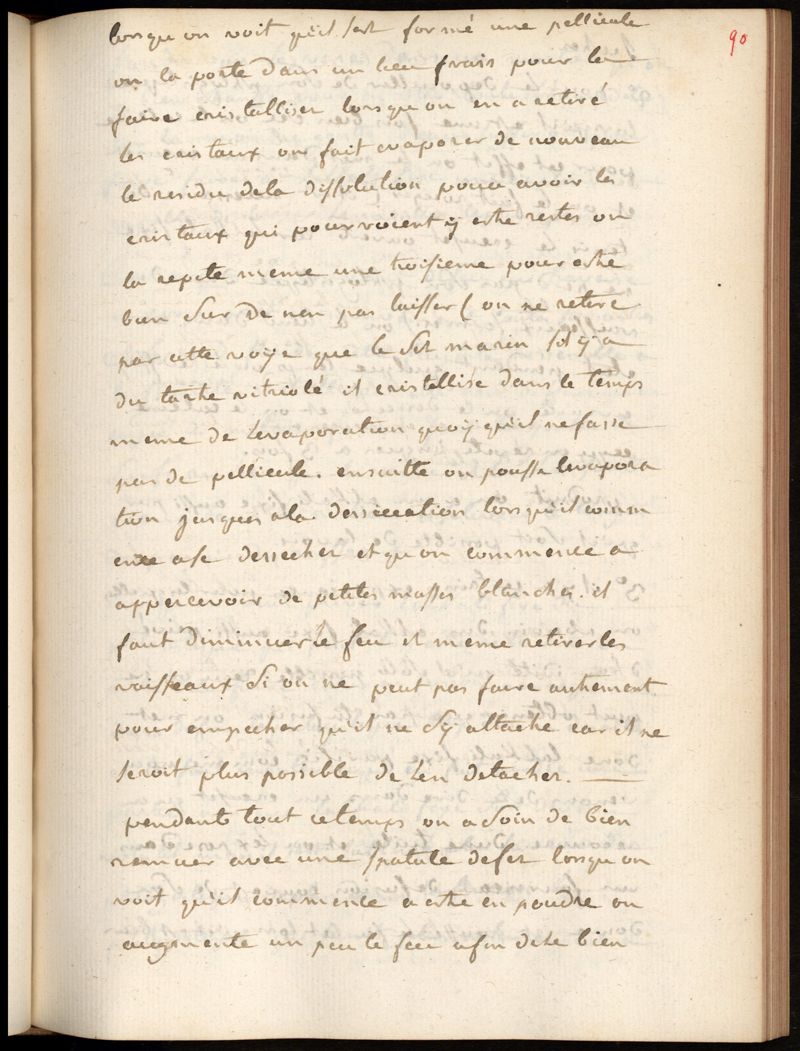 90
lorsqu on voit qu'il s'est formé une pellicule
on la porte dans un lieu frais pour la
faire cristalliser lorsqu on en a retiré
les cristaux on fait evaporer de nouveau
le residu de la dissolution pour avoir les
cristaux qui pourroient y estre restes on
la repete meme une troisieme pour estre
bien sur de nen pas laisser ( on ne retire
par cette voye que le sel marin s'il y a
du tartre vitriolé il cristallise dans le temps
meme de levaporation quoy qu'il ne fasse
pas de pellicule. ensuitte on pousse levapora
tion jusques a la dessiccation lorsqu'il comm
ence a se dessecher et qu on commence a
appercevoir de petites masses blanches. il
faut diminuer le feu et meme retirer les
vaisseaux si on ne peut pas faire autrement
pour empecher qu'il ne s'y attache car il ne
seroit plus possible de l'en detacher. —
pendant tout ce temps on a soin de bien
remuer avec une spatule de fer lorsqu on
voit qu'il commence a estre en poudre on
augmente un peu le feu afin de le bien